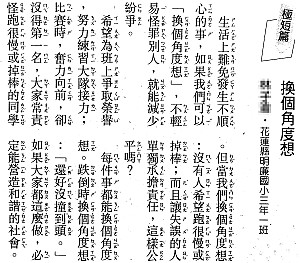 極短篇
換個角度想
・花蓮縣明廉國小三年一班
生活上難免發生不順
心的事，如果我們可以
「換個角度想」，不輕
易怪罪別人，就能減少
紛爭。
希望為班上爭取榮譽
，努力練習大隊接力；
比賽時，奮力向前，卻
沒得第一名，大家常責
怪跑很慢或掉棒的同學
。但當我們換個角度想
：沒有人希望跑很慢或
掉棒；而且讓失誤的人
單獨承擔責任，這樣公
平嗎？
每件事都能換個角度
想。跌倒時換個角度想
：「還好沒撞到頭。」
如果大家都這麼做，必
定能營造和諧的社會。